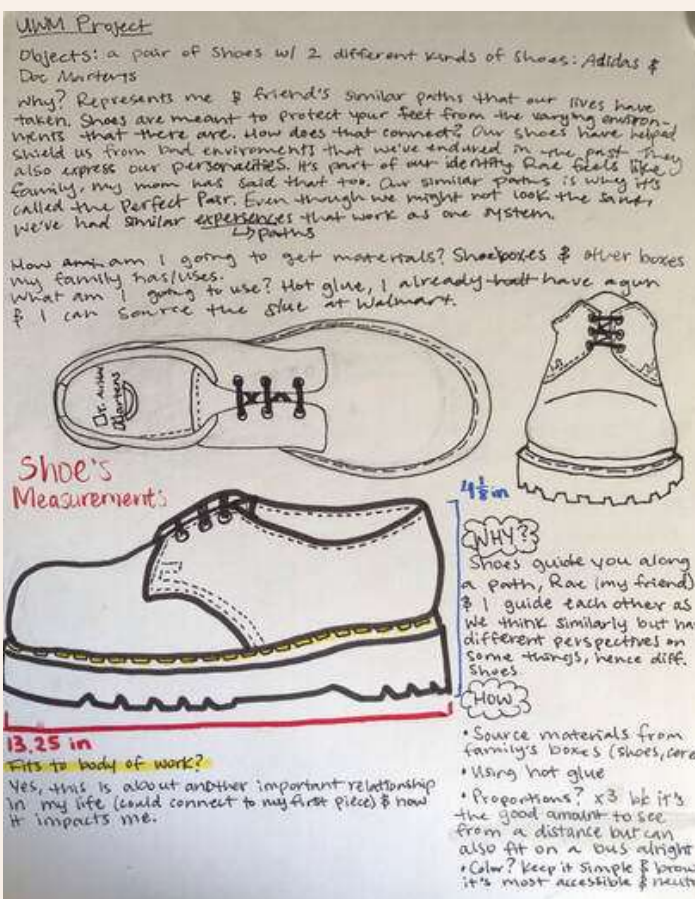 UWM Project
Objects: a pair of shoes w/ 2 different kinds of shoes: Adidas &
Doc Martens
Why? Represents me & friend's similar paths that our lives have
taken. Shoes are meant to protect your feet from the varying environ-
ments that there are. How does that connect? Our shoes have helped
shield us from bad enviroments that we've endured in the past They
also express our personalities. It's part of our identity Rae feels like
family, my mom has said that too. Our similar paths is why it's
called the Perfect Pair. Even though we might not look the same,
we've had similar experiences that work as one system.
↳paths
How am I going to get materials? Shoeboxes & other boxes
my family has/uses.
What am I going to use? Hot glue, I already have a gun
& I can source the glue at Walmart.
Martens
Shoe's
Measurements
4 1/8 in
WHY?
Shoes guide you along
a path, Rae (my friend)
& I guide each other as
we think similarly but ha
different perspectives on
some things, hence diff.
shoes
HOW
• Source materials from
family's boxes (shoes, cere
• Using hot glue
• Proportions? x3 b/c it's
the good amount to see
from a distance but can
also fit on a bus alright
• Color? Keep it simple & brow
it's most accessible & neut
13.25 in
Fits to body of work?
Yes, this is about another important relationship
in my life (could connect to my first piece) & how
it impacts me.